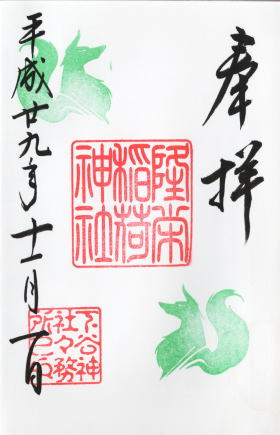 奉拝
隆栄
稲荷
神社
平成廿九年十一月一日
下谷神
社々務
所之印